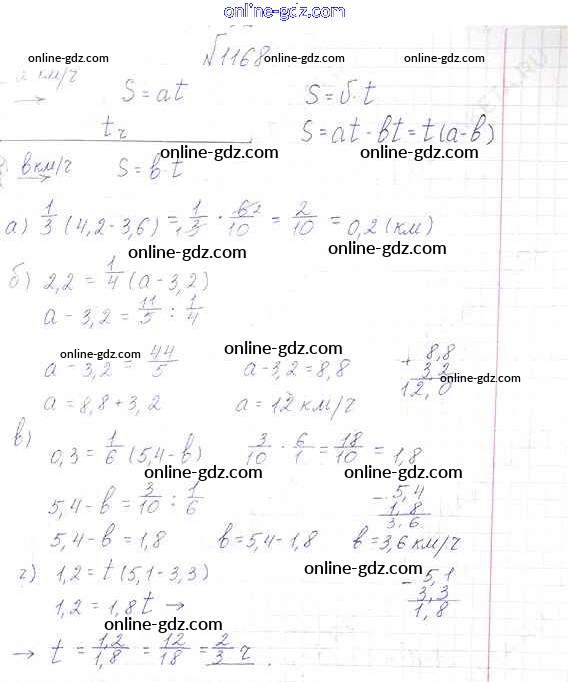 online-gdz.com
№1168
online-gdz.com online-gdz.com
a км/ч S = at S = v·t
t ч S = at - bt = t(a-b)
online-gdz.com online-gdz.com
b км/ч S = b·t
а) 1/3 (4,2-3,6) = 1/3 · 6/10 = 2/10 = 0,2 (км)
online-gdz.com online-gdz.com
б) 2,2 = 1/4 (a-3,2)
a - 3,2 = 11/5 : 1/4
online-gdz.com online-gdz.com
a - 3,2 = 44/5 a-3,2 = 8,8 + 8,8 3,2 12,0
online-gdz.com
a = 8,8 + 3,2 a = 12 км/ч
в) 0,3 = 1/6 (5,4-b) 3/10 · 6/1 = 18/10 = 1,8
online-gdz.com online-gdz.com
5,4 - b = 3/10 : 1/6 - 5,4 1,8 3,6
online-gdz.com online-gdz.com
5,4 - b = 1,8 b = 5,4 - 1,8 b = 3,6 км/ч
г) 1,2 = t(5,1-3,3) - 5,1 3,3 1,8
online-gdz.com online-gdz.com
1,2 = 1,8t →
→ t = 1,2/1,8 = 12/18 = 2/3 ч
online-gdz.com online-gdz.com